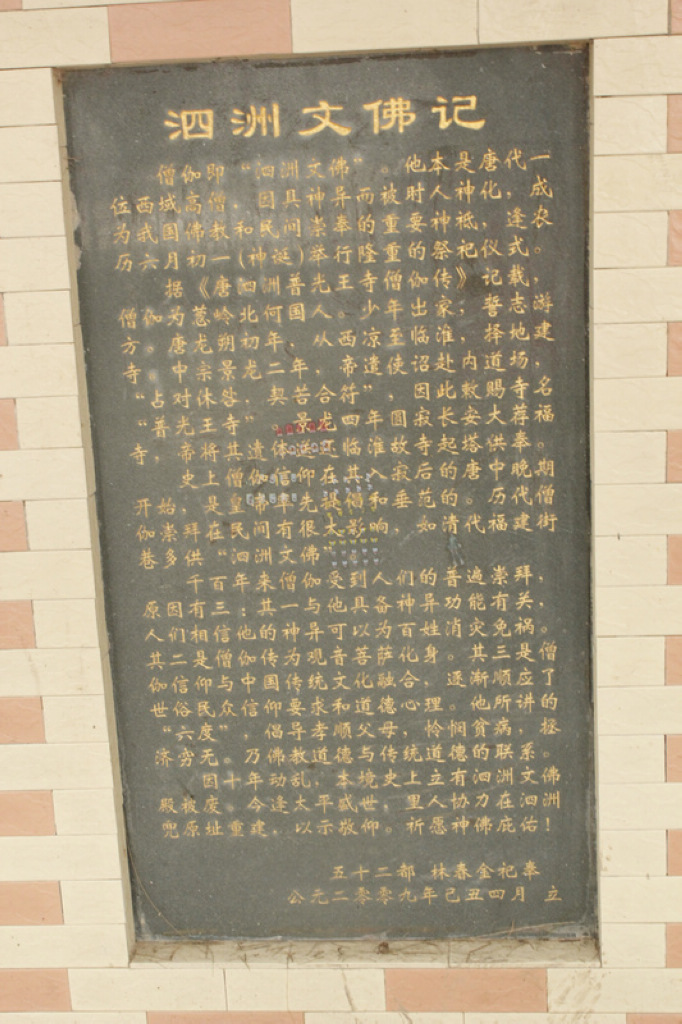 泗洲文佛记
僧伽即“泗洲文佛”。他本是唐代一
位西域高僧，因具神异而被时人神化，成
为我国佛教和民间崇奉的重要神祗，逢农
历六月初一(神诞)举行隆重的祭祀仪式。
据《唐泗洲普光王寺僧伽传》记载，
僧伽为葱岭北何国人。少年出家，誓志游
方。唐龙朔初年，从西凉至临淮，择地建
寺。中宗景龙二年，帝遣使诏赴内道场，
“占对休咎，契若合符”，因此敕赐寺名
“普光王寺”。景龙四年圆寂长安荐福
寺，帝将其遗体送还临淮故寺起塔供奉。
史上僧伽信仰在其入寂后的唐中晚期
开始，是皇帝率先被倡和垂范的。历代僧
伽崇拜在民间有很大影响，如清代福建街
巷多供“泗洲文佛
千百年来僧伽受到人们的普遍崇拜，
原因有三：其一与他具备神异功能有关，
人们相信他的神异可以为百姓消灾免祸。
其二是僧伽传为观音菩萨化身。其三是僧
伽信仰与中国传统文化融合，逐渐顺应了
世俗民众信仰要求和道德心理。他所讲的
“六度”，倡导孝顺父母，怜悯贫病，拯
济穷无。乃佛教道德与传统道德的联系。
因十年动乱，本境史上立有泗洲文佛
殿被废。今逢太平盛世，里人协力在泗洲
兜原址重建，以示敬仰。祈愿神佛庇佑！
五十二都 林春金祀奉
公元二零零九年己丑四月 立